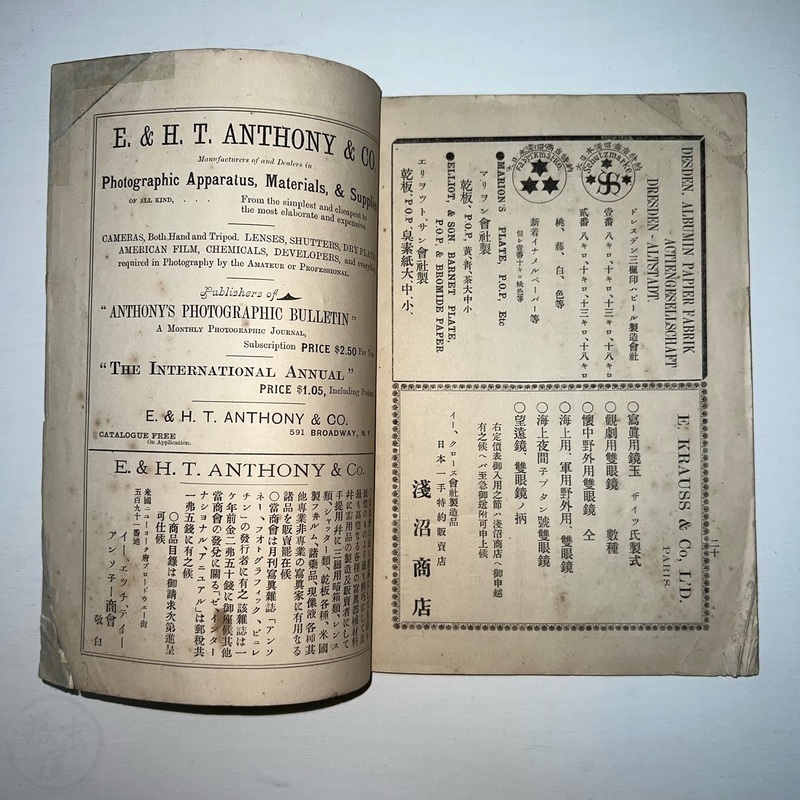 E. & H. T. ANTHONY & CO.
Manufacturers of and Dealers in
Photographic Apparatus, Materials, &
OF ALL KIND, . . . From the simplest and cheapest to
the most elaborate and expensive.
CAMERAS, Both Hand and Tripod. LENSES, SHUTTERS, DRY PLATES
AMERICAN FILM, CHEMICALS, DEVELOPERS, and everything
required in Photography by the AMATEUR or PROFESSIONAL.
Publishers of
"ANTHONY'S PHOTOGRAPHIC BULLETIN"
A MONTHLY PHOTOGRAPHIC JOURNAL,
Subscription PRICE $2.50 Per
"THE INTERNATIONAL ANNUAL"
PRICE $1.05, Including
E. & H. T. ANTHONY & CO.
591 BROADWAY, N.Y.
CATALOGUE FREE
On Application.
E. & H. T. ANTHONY & Co.
手提用幷に三脚用暗箱類、レンス
類、シャッター類、乾板各種、米國
製フ井ルム、諸藥品、現像液各種其
他專業非專業の寫眞家に有用なる
諸品を販賣罷在候
〇當商會は月刊寫眞雜誌「アンソ
ニー、フオトグラフィック、ビュレ
チン」の發行者に有之該雜誌は一
ケ年前金二弗五十錢に御座候其他
當商會の發兌に關る「ゼ、インター
ナショナル、アニュアル」は郵税共
一弗五錢に有之候
〇商品目錄は御請求次第進呈
可仕候
米國ニューヨーク府ブロードウエー街
五百九十一番地
イー、エッチ、テイー
アンソニー商會
敬白
二十
DESDEN. ALBUMIN PAPIER FABRIK
ACTIENGESELLSCHAFT
DRESDEN-ALTSTADT.
Schutzmarke
Fabrikmarke
ドレスデン三楓印ハピール製造會社
壹番 八キロ、十三キロ、十八キロ
貳番 八キロ、十三キロ、十八キロ
桃、藤、白、色等
新着イナメルペーパー等
●MARION'S PLATE, P.O.P, Etc
マリヲン會社製
乾板、P.O.P, 黄、青、茶大中小
●ELLIOT, & SON BARNET PLATE,
P.O.P, & BROMIDE PAPER
エリヲット、サン會社製
乾板、P.O.P, 臭素紙大、中、小、
E. KRAUSS & Co, L'D.
PARIS.
〇寫眞用鏡玉 ザイツ氏製式
〇觀劇用雙眼鏡 數種
〇懷中野外用雙眼鏡 仝
〇海上用、軍用野外用、雙眼鏡
〇海上夜間子プタン號雙眼鏡
〇望遠鏡、雙眼鏡ノ柄
右定價表御入用之節ハ淺沼商店ヘ御申越
有之候ヘバ至急御送附可申上候
イー、クローズ會社製造品
日本一手特約販賣店
淺沼商店